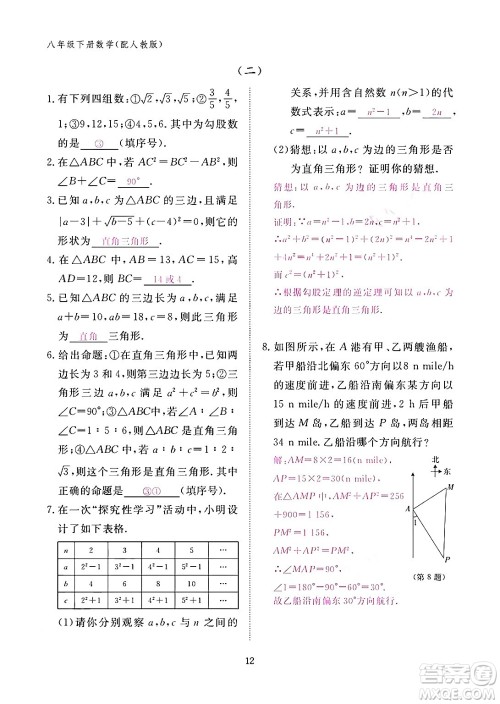 八年级下册数学(配人教版)
(二)
1. 有下列四组数:①√2,√3,√5;②3/5,4/5,
1;③9,12,15;④1,2,√3. 其中为勾股数的
是 ③ (填序号).
2. 在△ABC 中,若 AC²=BC²-AB²,则
∠B+∠C= 90° .
3. 已知 a,b,c 为△ABC 的三边,且满足
|a-3|+√(b-5)+(c-4)²=0,则它的
形状为 直角三角形 .
4. 在△ABC 中,AB=13,AC=15,高
AD=12,则 BC= 14或4 .
5. 已知△ABC 的三边长为 a,b,c,且满足
a+b=10,ab=18,c=8,则此三角形为
直角 三角形.
6. 给出命题:①在直角三角形中,已知两边
长为 3 和 4,则第三边长为 5;②三
角形的三边长 a,b,c 满足 a²+c²=b²,则
∠C=90°;③△ABC 中,若∠A:∠B:
∠C=1:5:6,则△ABC 是直角三角
形;④△ABC 中,若 a:b:c=1:2:
√3,则这个三角形是直角三角形. 其中
正确的命题是 ③④ (填序号).
7. 在一次“探究性学习”活动中,小明设
计了如下表格.
n 2 3 4 5 …
a 2²-1 3²-1 4²-1 5²-1 …
b 4 6 8 10 …
c 2²+1 3²+1 4²+1 5²+1 …
(1)请你分别观察 a,b,c 与 n 之间的
关系,并用含自然数 n(n>1)的代
数式表示:a= n²-1 ,b= 2n ,
c= n²+1 .
(2)猜想:以 a,b,c 为边的三角形是否
为直角三角形?证明你的猜想.
猜想:以 a,b,c 为边的三角形是直角三
角形.
∴根据勾股定理的逆定理可知以 a,b,c
为边的三角形是直角三角形.
8. 如图所示,在 A 港有甲、乙两艘渔船,
若甲船沿北偏东 60°方向以 8 n mile/h
的速度前进,乙船沿南偏东某方向以
15 n mile/h 的速度前进,2 h 后甲船
到达 M 岛,乙船到达 P 岛,两岛相距
34 n mile.乙船沿哪个方向航行?
解:AM=8×2=16(n mile),
AP=15×2=30(n mile),
在△AMP 中,AM²+AP²=256
+900=1 156,
PM²=34²=1 156,
∴AM²+AP²=PM².
∴∠MAP=90°.
∴∠1=180°-90°-60°=30°.
故乙船沿南偏东 30°方向航行.
北
东
M
A
1
P
(第 8 题)
12